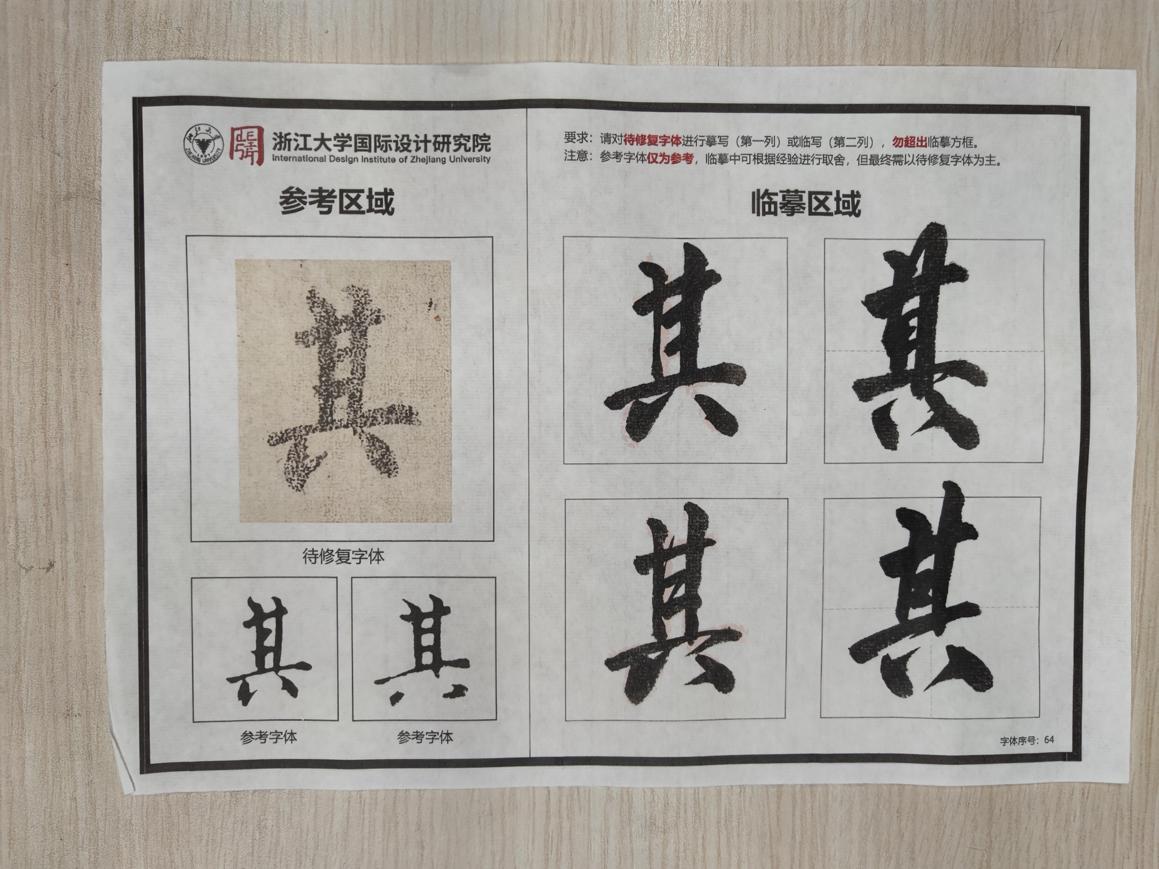 浙江大学国际设计研究院
International Design Institute of Zhejiang University
参考区域
其
待修复字体
其 其
参考字体 参考字体
要求：请对待修复字体进行摹写（第一列）或临写（第二列），勿超出临摹方框。
注意：参考字体仅为参考，临摹中可根据经验进行取舍，但最终需以待修复字体为主。
临摹区域
其 其
其 其
字体序号：64